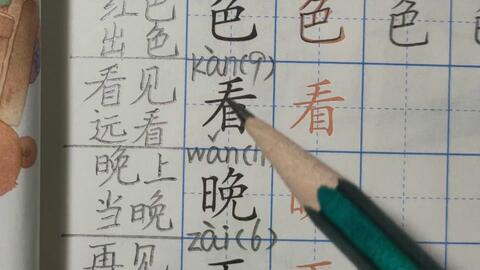 红色
出色
色 色 色
kàn(9)
看见
远看
看 看
wǎn(11
晚上
当晚
晚
zài(6)
再见